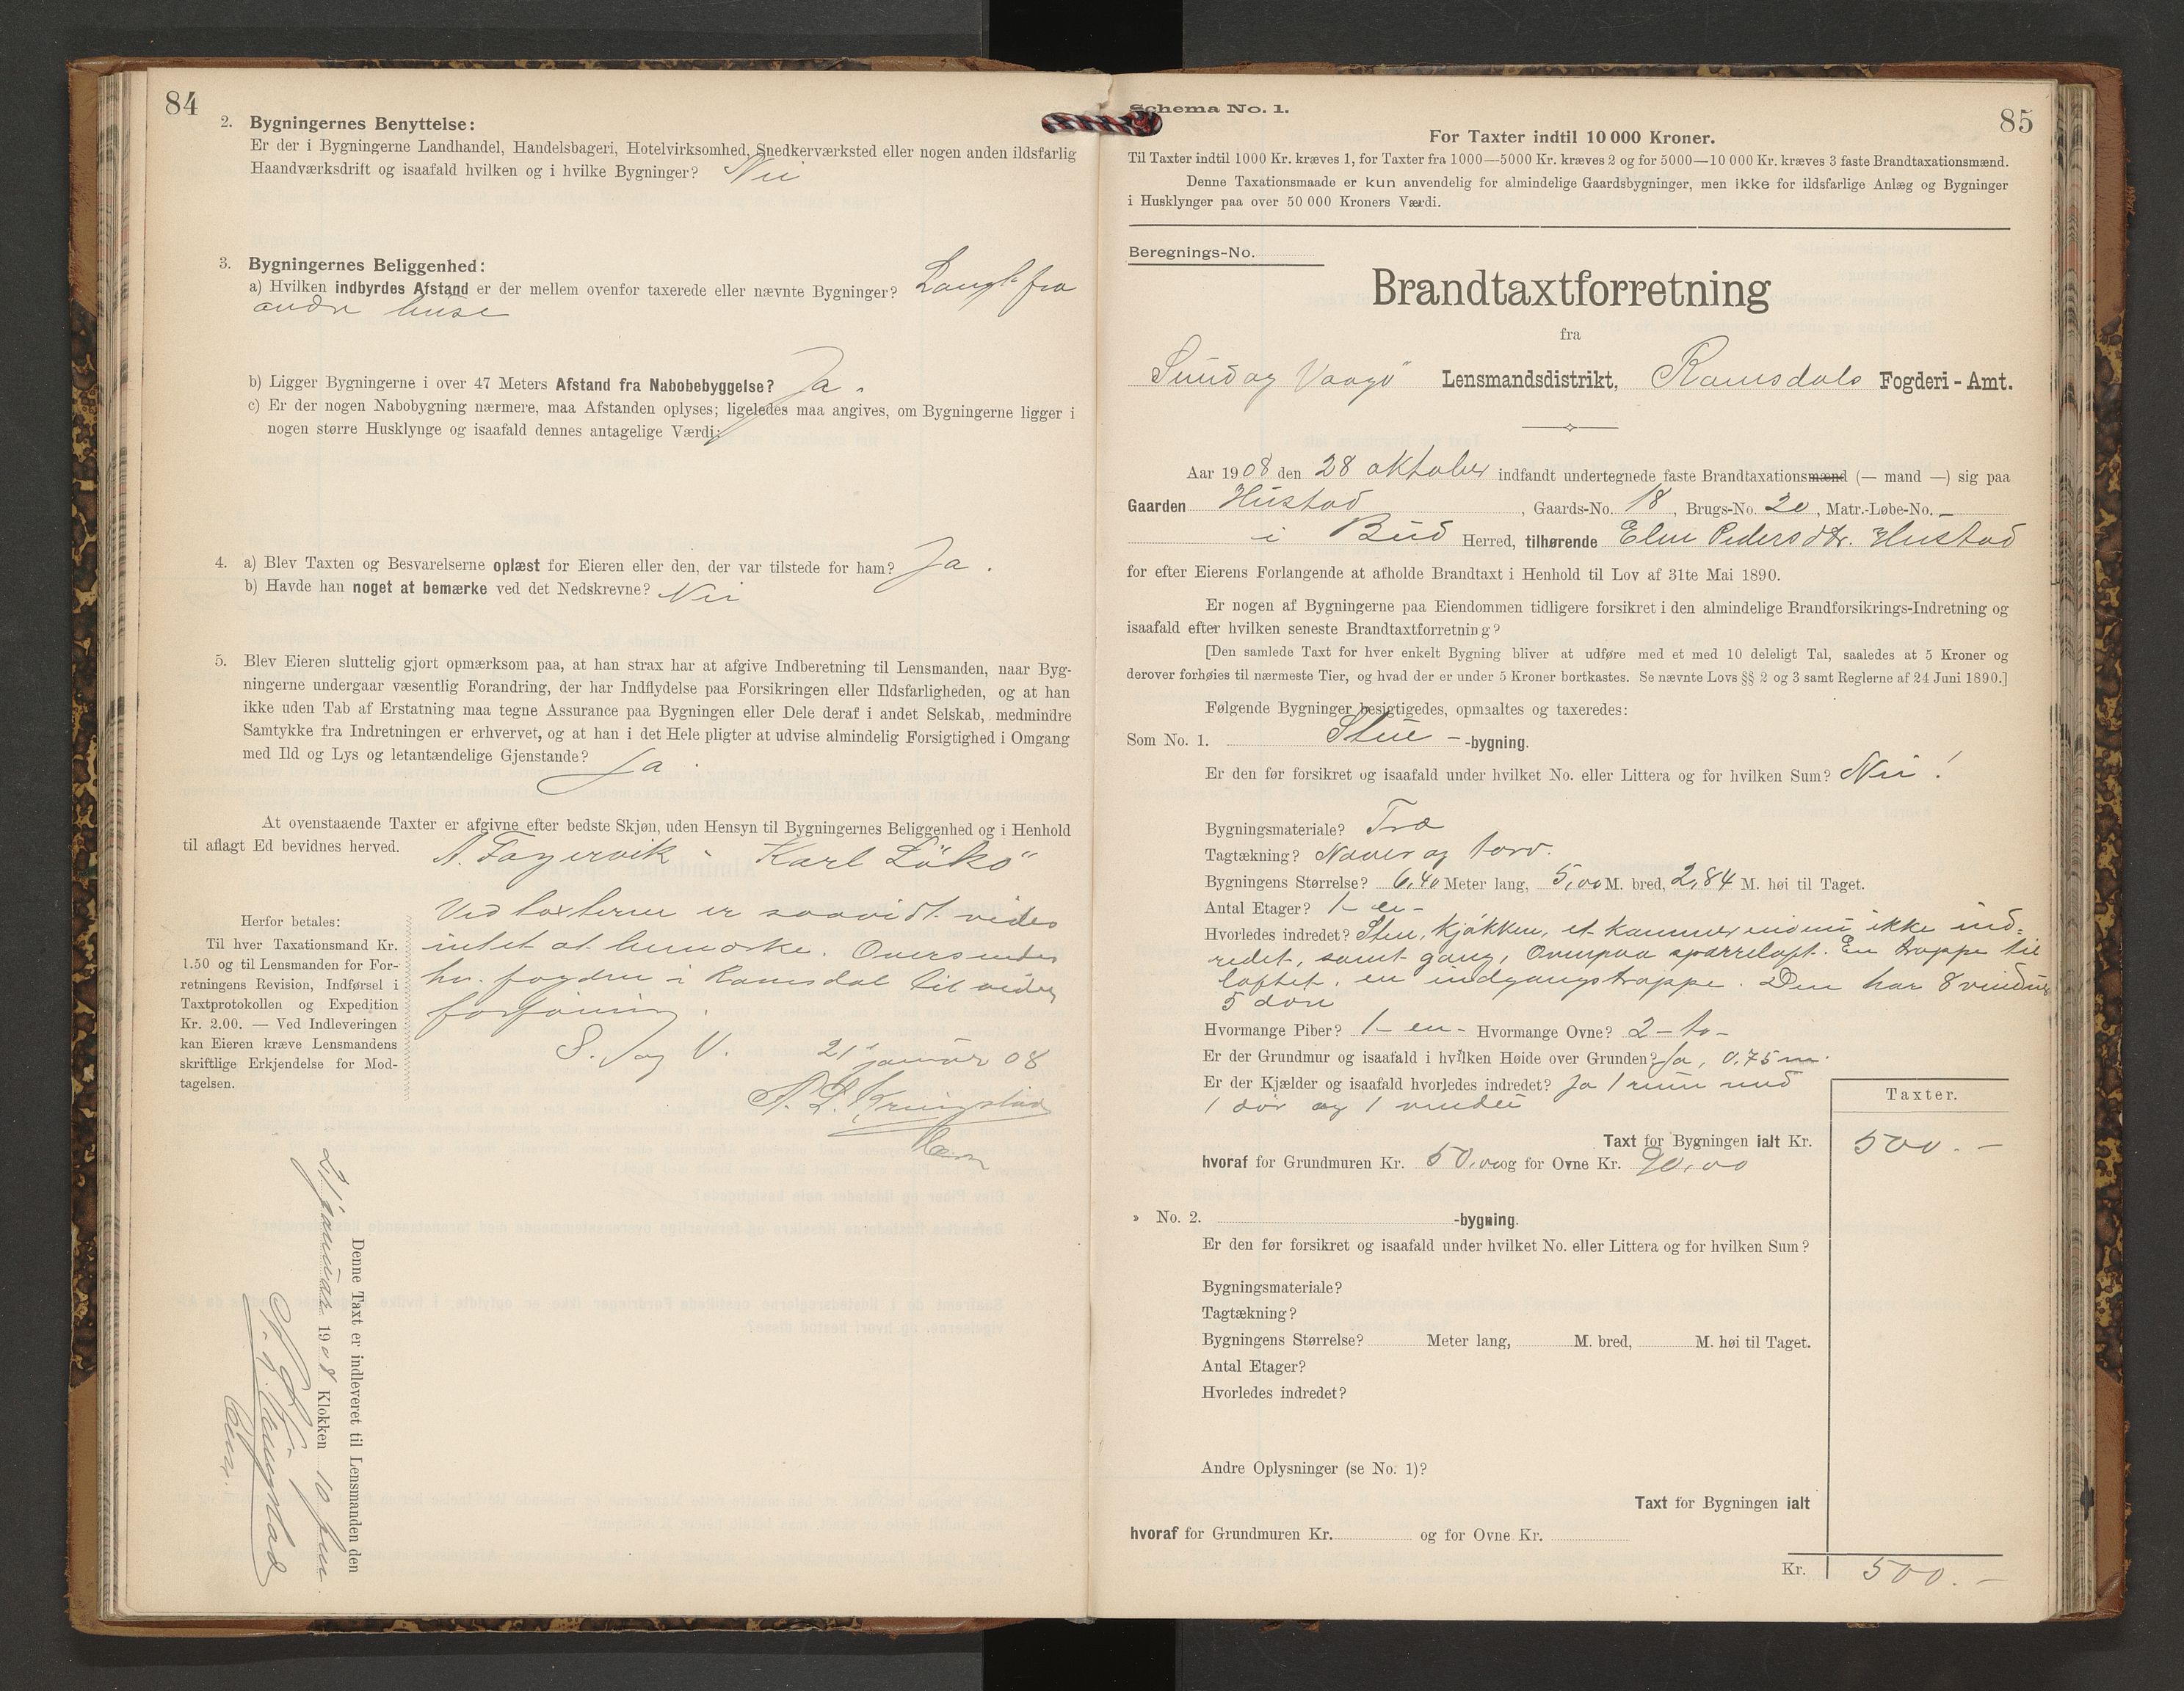 84
2. Bygningernes Benyttelse:
Er der i Bygningerne Landhandel, Handelsbageri, Hotelvirksomhed, Snedkerværksted eller nogen anden ildsfarlig
Haandværksdrift og isaafald hvilken og i hvilke Bygninger? Nei
3. Bygningernes Beliggenhed:
a) Hvilken indbyrdes Afstand er der mellem ovenfor taxerede eller nævnte Bygninger? Langt fra
andre huse
b) Ligger Bygningerne i over 47 Meters Afstand fra Nabobebyggelse? Ja.
c) Er der nogen Nabobygning nærmere, maa Afstanden oplyses; ligeledes maa angives, om Bygningerne ligger i
nogen større Husklynge og isaafald dennes antagelige Værdi:
4. a) Blev Taxten og Besvarelserne oplæst for Eieren eller den, der var tilstede for ham? Ja.
b) Havde han noget at bemærke ved det Nedskrevne? Nei
5. Blev Eieren sluttelig gjort opmærksom paa, at han strax har at afgive Indberetning til Lensmanden, naar Byg-
ningerne undergaar væsentlig Forandring, der har Indflydelse paa Forsikringen eller Ildsfarligheden, og at han
ikke uden Tab af Erstatning maa tegne Assurance paa Bygningen eller Dele deraf i andet Selskab, medmindre
Samtykke fra Indretningen er erhvervet, og at han i det Hele pligter at udvise almindelig Forsigtighed i Omgang
med Ild og Lys og letantændelige Gjenstande? Ja.
At ovenstaaende Taxter er afgivne efter bedste Skjøn, uden Hensyn til Bygningernes Beliggenhed og i Henhold
til aflagt Ed bevidnes herved. A. Fagervik. Karl Lökö
Ved taxterne er saavidt vides
intet at bemærke. Oversendes
hr. fogden i Romsdal til videre
föining.
S. og V. 21 januar 08
A. L. Kringstad
Herfor betales:
Til hver Taxationsmand Kr.
1.50 og til Lensmanden for For-
retningens Revision, Indførsel i
Taxtprotokollen og Expedition
Kr. 2.00. — Ved Indleveringen
kan Eieren kræve Lensmandens
skriftlige Erkjendelse for Mod-
tagelsen.
Denne Taxt er indleveret til Lensmanden den
21 januar 1908 Klokken 10 fm.
A. L. Kringstad
85
Schema No. 1.
For Taxter indtil 10 000 Kroner.
Til Taxter indtil 1000 Kr. kræves 1, for Taxter fra 1000—5000 Kr. kræves 2 og for 5000—10 000 Kr. kræves 3 faste Brandtaxationsmænd.
Denne Taxationsmaade er kun anvendelig for almindelige Gaardsbygninger, men ikke for ildsfarlige Anlæg og Bygninger
i Husklynger paa over 50 000 Kroners Værdi.
Beregnings-No.
Brandtaxtforretning
fra
Sund og Vaagö Lensmandsdistrikt, Romsdals Fogderi - Amt.
Aar 1908 den 28 oktober indfandt undertegnede faste Brandtaxationsmænd (— mand —) sig paa
Gaarden Hustad, Gaards-No. 18, Brugs-No. 20, Matr.-Løbe-No. -
i Bud Herred, tilhørende Elen Pedersdtr. Hustad
for efter Eierens Forlangende at afholde Brandtaxt i Henhold til Lov af 31te Mai 1890.
Er nogen af Bygningerne paa Eiendommen tidligere forsikret i den almindelige Brandforsikrings-Indretning og
isaafald efter hvilken seneste Brandtaxtforretning?
[Den samlede Taxt for hver enkelt Bygning bliver at udføre med et med 10 deleligt Tal, saaledes at 5 Kroner og
derover forhøies til nærmeste Tier, og hvad der er under 5 Kroner bortkastes. Se nævnte Lovs §§ 2 og 3 samt Reglerne af 24 Juni 1890.]
Følgende Bygninger besigtigedes, opmaaltes og taxeredes:
Som No. 1. Stue - -bygning.
Er den før forsikret og isaafald under hvilket No. eller Littera og for hvilken Sum? Nei!
Bygningsmateriale? Træ
Tagtækning? Næver og torv.
Bygningens Størrelse? 6,40 Meter lang, 5,00 M. bred, 2,84 M. høi til Taget.
Antal Etager? 1 - en -
Hvorledes indredet? Stue, kjökken, et kammer endnu ikke ind-
redet, samt gang, Ovenpaa sparreloft. En trappe til
loftet, en indgangstrappe. Den har 8 vinduer
5 döre
Hvormange Piber? 1 - en - Hvormange Ovne? 2 - to -
Er der Grundmur og isaafald i hvilken Høide over Grunden? Ja, 0,75 m.
Er der Kjælder og isaafald hvorledes indredet? Ja 1 rum med
1 dör og 1 vindu
Taxter.
Taxt for Bygningen ialt Kr. 500. -
hvoraf for Grundmuren Kr. 50,00 og for Ovne Kr. 90,00
» No. 2. -bygning.
Er den før forsikret og isaafald under hvilket No. eller Littera og for hvilken Sum?
Bygningsmateriale?
Tagtækning?
Bygningens Størrelse? Meter lang, M. bred, M. høi til Taget.
Antal Etager?
Hvorledes indredet?
Andre Oplysninger (se No. 1)?
Taxt for Bygningen ialt
hvoraf for Grundmuren Kr. og for Ovne Kr.
Kr. 500. -